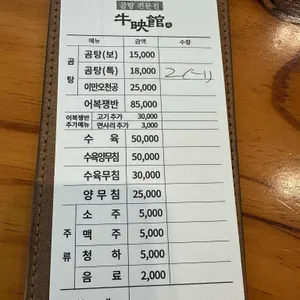 곰탕 전문점
牛映館
메뉴 금액 수량
곰탕
곰탕(보) 15,000
곰탕(특) 18,000
이만오천공 25,000
어복쟁반 85,000
어복쟁반 추가메뉴
고기 추가 30,000
면사리 추가 3,000
수육 50,000
수육양무침 50,000
수육무침 30,000
양무침 25,000
주류
소주 5,000
맥주 5,000
청하 5,000
음료 2,000